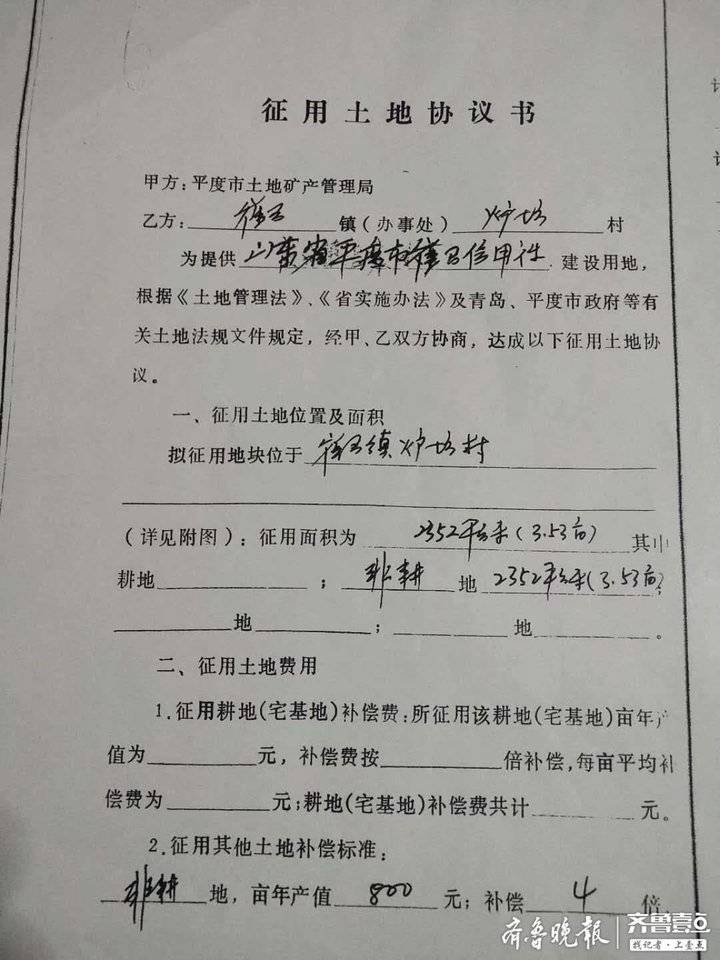 征用土地协议书
甲方：平度市土地矿产管理局
乙方： 崔召 镇（办事处） 炉坊 村
为提供 山东省平度市崔召信用社 建设用地，
根据《土地管理法》、《省实施办法》及青岛、平度市政府等有
关土地法规文件规定，经甲、乙双方协商，达成以下征用土地协
议。
一、征用土地位置及面积
拟征用地块位于 崔召镇炉坊村
（详见附图）：征用面积为 2352平方米(3.53亩) 其中
耕地 ； 非耕 地 2352平方米(3.53亩)；
地 ； 地 。
二、征用土地费用
1.征用耕地(宅基地)补偿费：所征用该耕地(宅基地)亩年产
值为 元，补偿费按 倍补偿，每亩平均补
偿费为 元；耕地(宅基地)补偿费共计 元。
2.征用其他土地补偿标准：
非耕 地，亩年产值 800 元；补偿 4 倍
齐鲁晚报
齐鲁壹点
找记者·上壹点